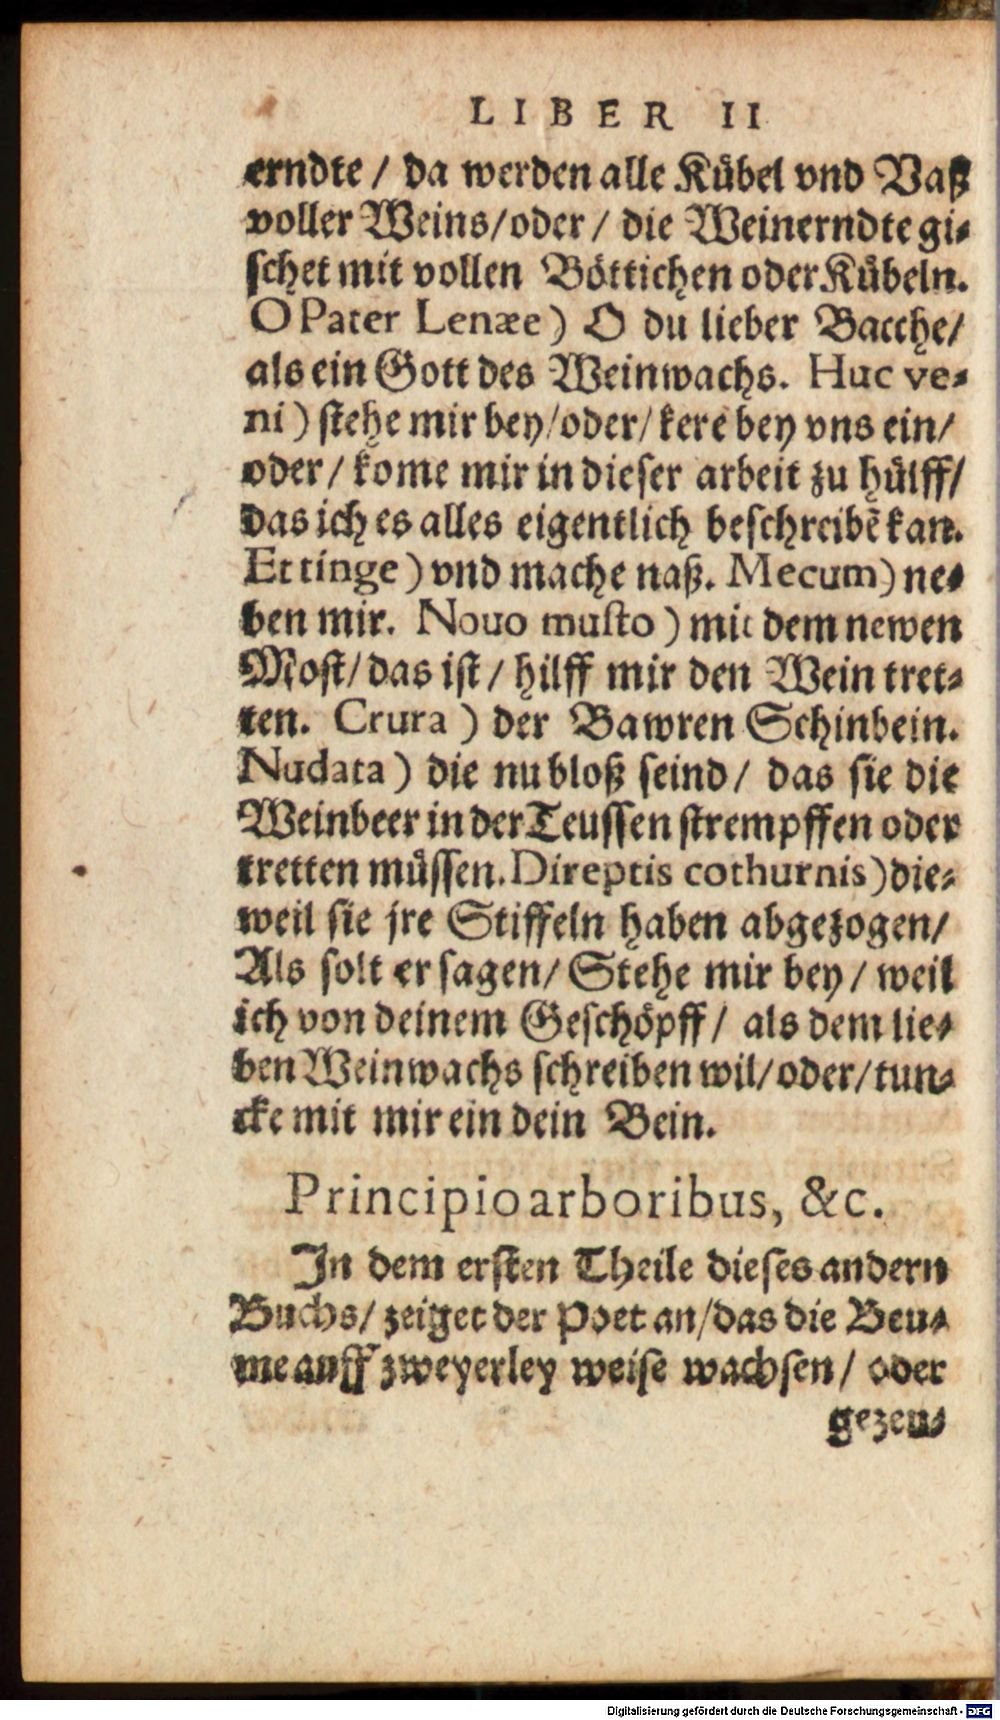 LIBER II
erndte / da werden alle Kübel vnd Vaß
voller Weins/oder / die Weinerndte gi-
schet mit vollen Böttichen oder Kübeln.
O Pater Lenæe) O du lieber Bacche/
als ein Gott des Weinwachs. Huc ve-
ni) stehe mir bey/oder/kere bey vns ein/
oder / kome mir in dieser arbeit zu hülff/
das ich es alles eigentlich beschreibẽ kan.
Et tinge) vnd mache naß. Mecum) ne-
ben mir. Nouo musto) mit dem newen
Most/das ist / hilff mir den Wein tret-
ten. Crura) der Bawren Schinbein.
Nudata) die nu bloß seind/ das sie die
Weinbeer in der Teussen strempffen oder
tretten müssen. Direptis cothurnis) die-
weil sie jre Stiffeln haben abgezogen/
Als solt er sagen/ Stehe mir bey / weil
ich von deinem Geschöpff / als dem lie-
ben Weinwachs schreiben wil/oder/tun-
cke mit mir ein dein Bein.
Principio arboribus, &c.
In dem ersten Theile dieses andern
Buchs/ zeiget der Poet an/das die Beu-
me auff zweyerley weise wachsen / oder
gezeu-
Digitalisierung gefördert durch die Deutsche Forschungsgemeinschaft - DFG